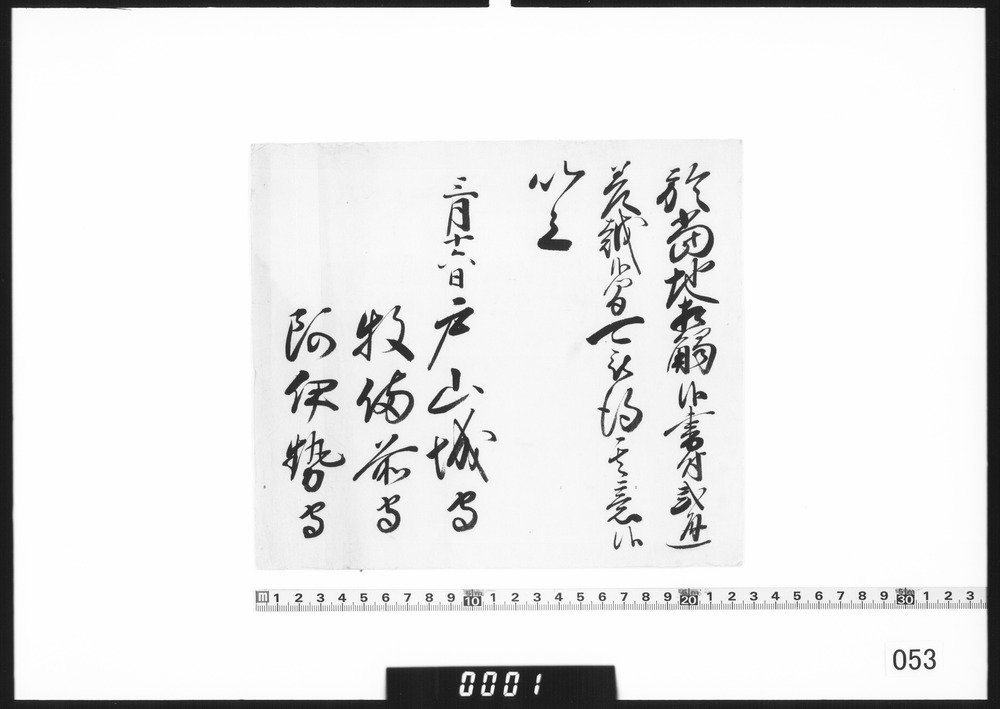 於当地相触候書付弐通
差越候間可被得其意候
以上
三月十六日 戸山城守
牧備前守
阿伊勢守
m 1 2 3 4 5 6 7 8 9 10 1 2 3 4 5 6 7 8 9 20 1 2 3 4 5 6 7 8 9 30 1 2 3
053
0001